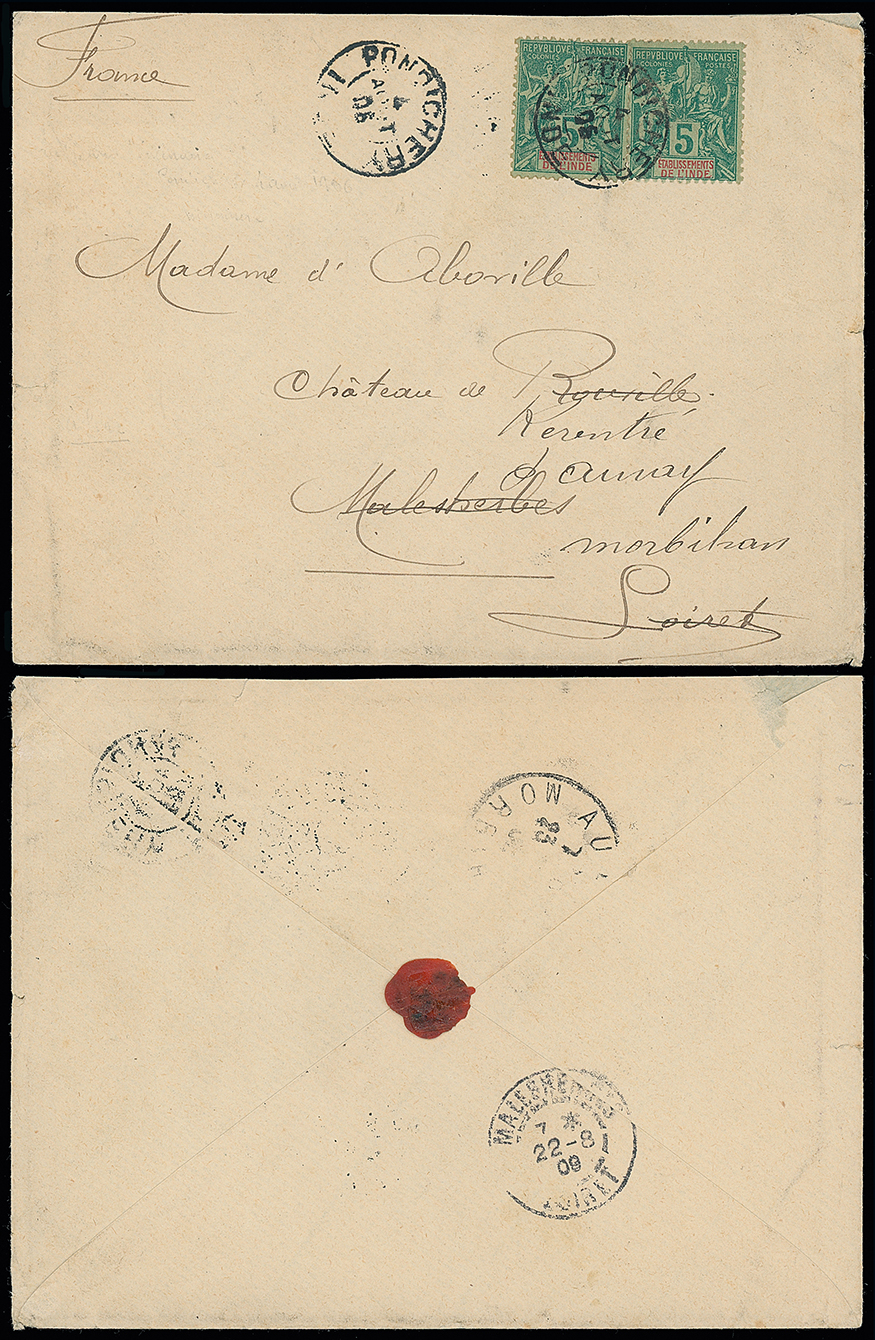 France
PONDICHERY
4
AOUT
RÉPUBLIQUE FRANÇAISE
COLONIES
5
ÉTABLISSEMENTS
DE L'INDE
RÉPUBLIQUE FRANÇAISE
COLONIES POSTES
5
ÉTABLISSEMENTS
DE L'INDE
PONDICHERY
4
AOUT
Madame d' Aboville
Château de Rouville.
Kerentré
Malesherbes
morbihan
Loiret
AU
MOR
23
MALESHERBES
7 *
22-8
09
LOIRET